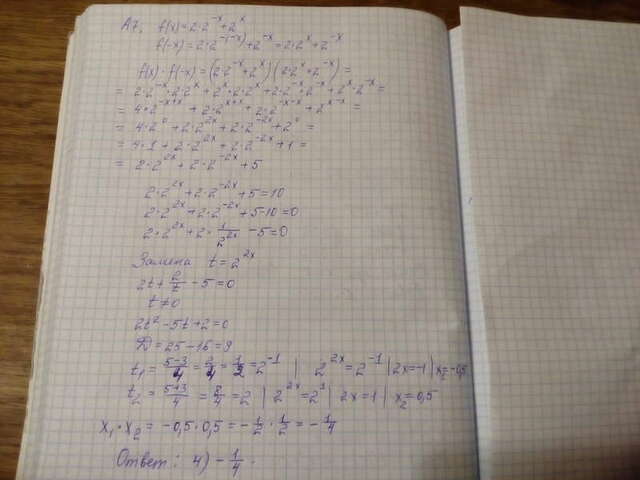 A7. f(x)=2·2^-x+2^x
f(-x)=2·2^-(-x)+2^-x=2·2^x+2^-x
f(x)·f(-x)=(2·2^-x+2^x)(2·2^x+2^-x)=
=2·2^-x·2·2^x+2^x·2·2^x+2·2^-x·2^-x+2^x·2^-x=
=4·2^-x+x+2·2^x+x+2·2^-x-x+2^x-x=
=4·2^0+2·2^2x+2·2^-2x+2^0=
=4·1+2·2^2x+2·2^-2x+1=
=2·2^2x+2·2^-2x+5
2·2^2x+2·2^-2x+5=10
2·2^2x+2·2^-2x+5-10=0
2·2^2x+2·1/2^2x-5=0
Замена t=2^2x
2t+2/t-5=0
t≠0
2t²-5t+2=0
D=25-16=9
t₁=5-3/4=2/4=1/2=2^-1 | 2^2x=2^-1 | 2x=-1 | x₁=-0,5
t₂=5+3/4=8/4=2 | 2^2x=2^1 | 2x=1 | x₂=0,5
x₁·x₂=-0,5·0,5=-1/2·1/2=-1/4
Ответ: 4) -1/4.